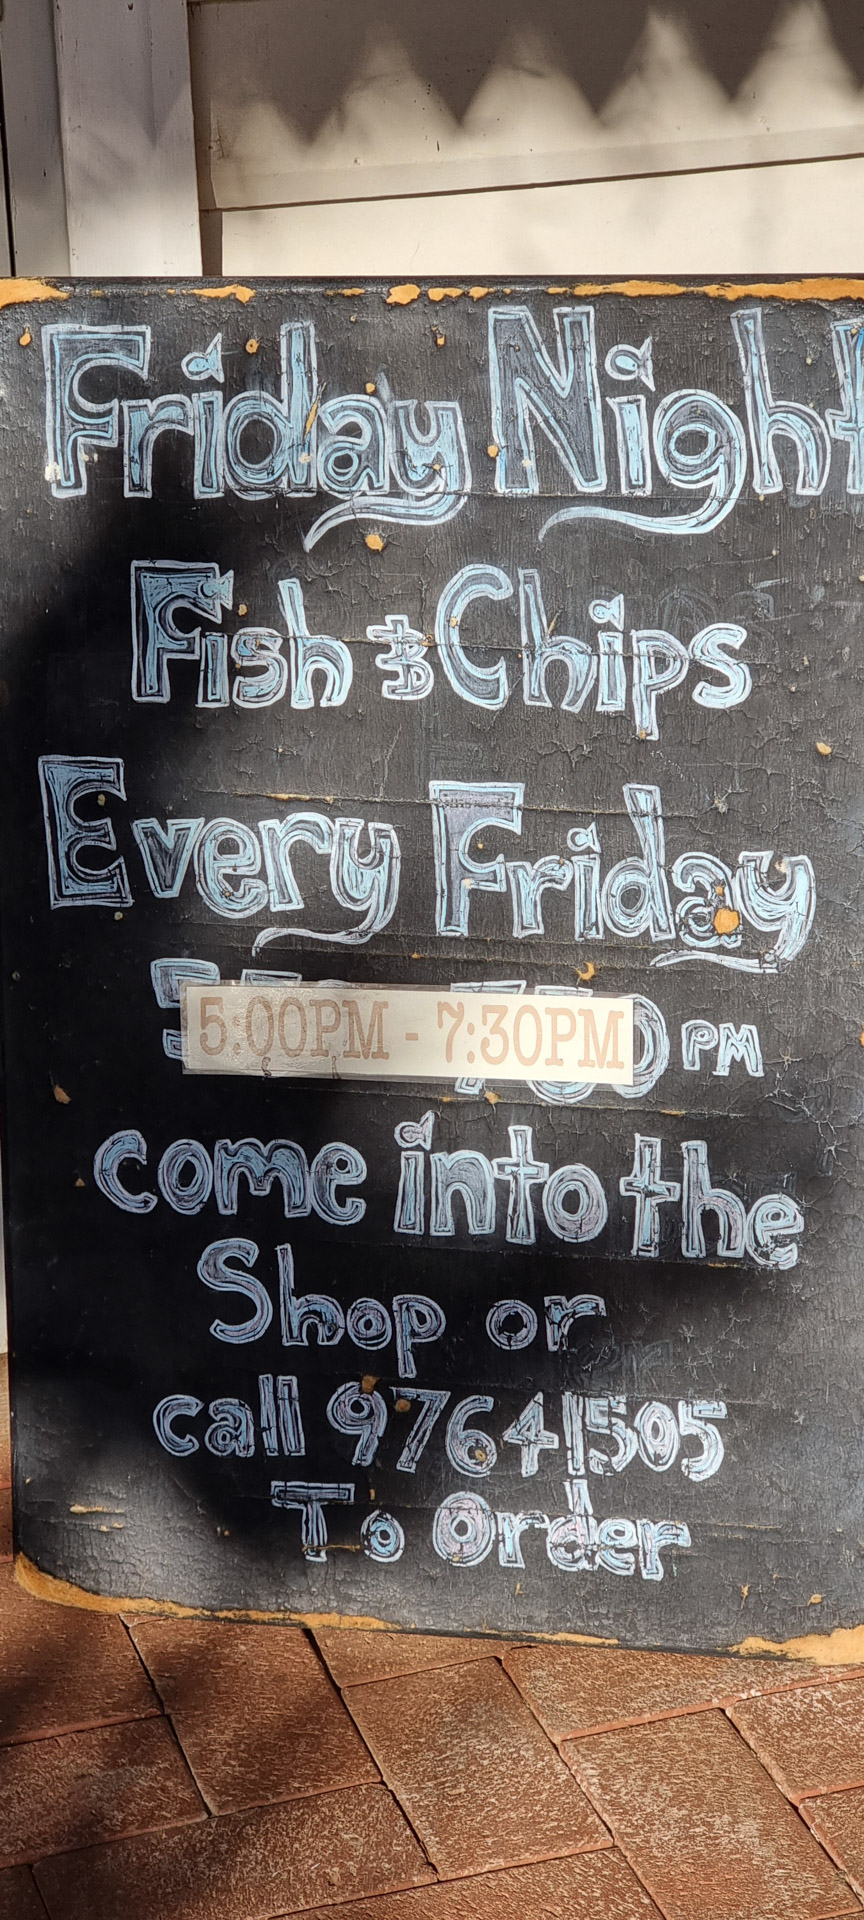 Friday Night
Fish & Chips
Every Friday
5:00PM - 7:30PM PM
come into the
Shop or
call 97641505
To Order